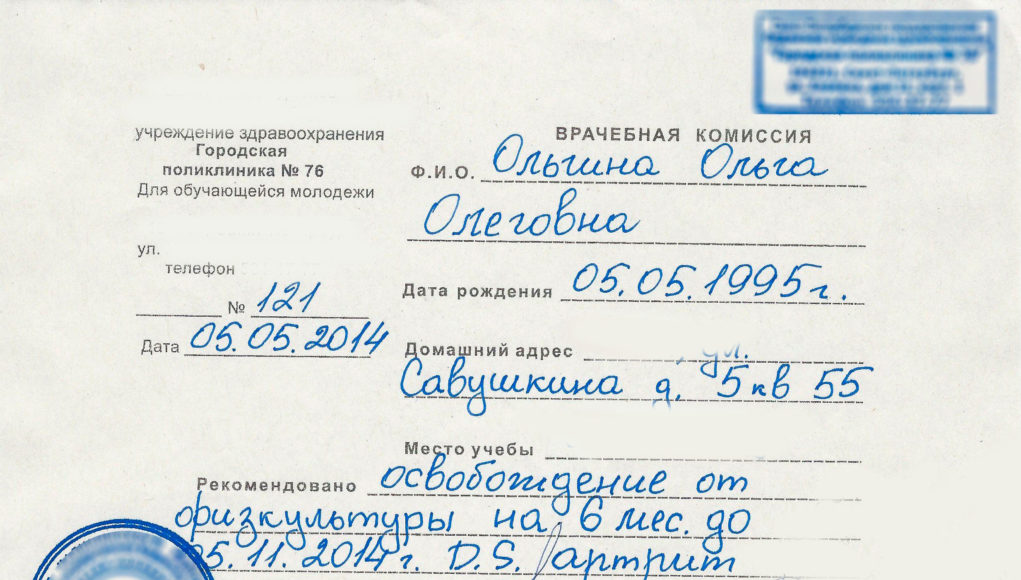 учреждение здравоохранения
Городская
поликлиника № 76
Для обучающейся молодежи
ул.
телефон
№ 121
Дата 05.05.2014
ВРАЧЕБНАЯ КОМИССИЯ
Ф.И.О. Ольгина Ольга
Олеговна
Дата рождения 05.05.1995г.
Домашний адрес ул.
Савушкина д. 5 кв 55
Место учебы
Рекомендовано освобождение от
физкультуры на 6 мес. до
05.11.2014г. D.S. артрит